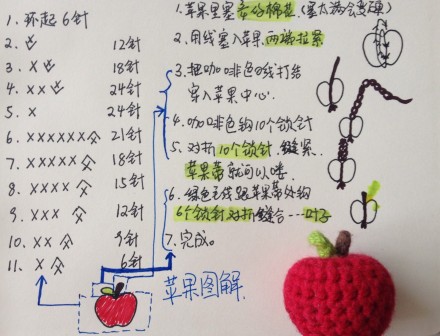 1. 环起6针
2. V 12针
3. XV 18针
4. XXV 24针
5. X 24针
6. XXXXXX 21针
7. XXXXX 18针
8. XXXX 15针
9. XXX 12针
10. XX 9针
11. X 6针
1. 苹果里塞 棉花. (塞太满会变硬)
2. 用线塞入苹果. 两端拉紧
3. 把咖啡色线打结
穿入苹果中心.
4. 咖啡色钩10个锁针
5. 对折10个锁针. 缝紧.
苹果蒂就可以喽.
6. 绿色毛线跟苹果蒂处钩
6个锁针对折缝合……叶子
7. 完成。
苹果图解